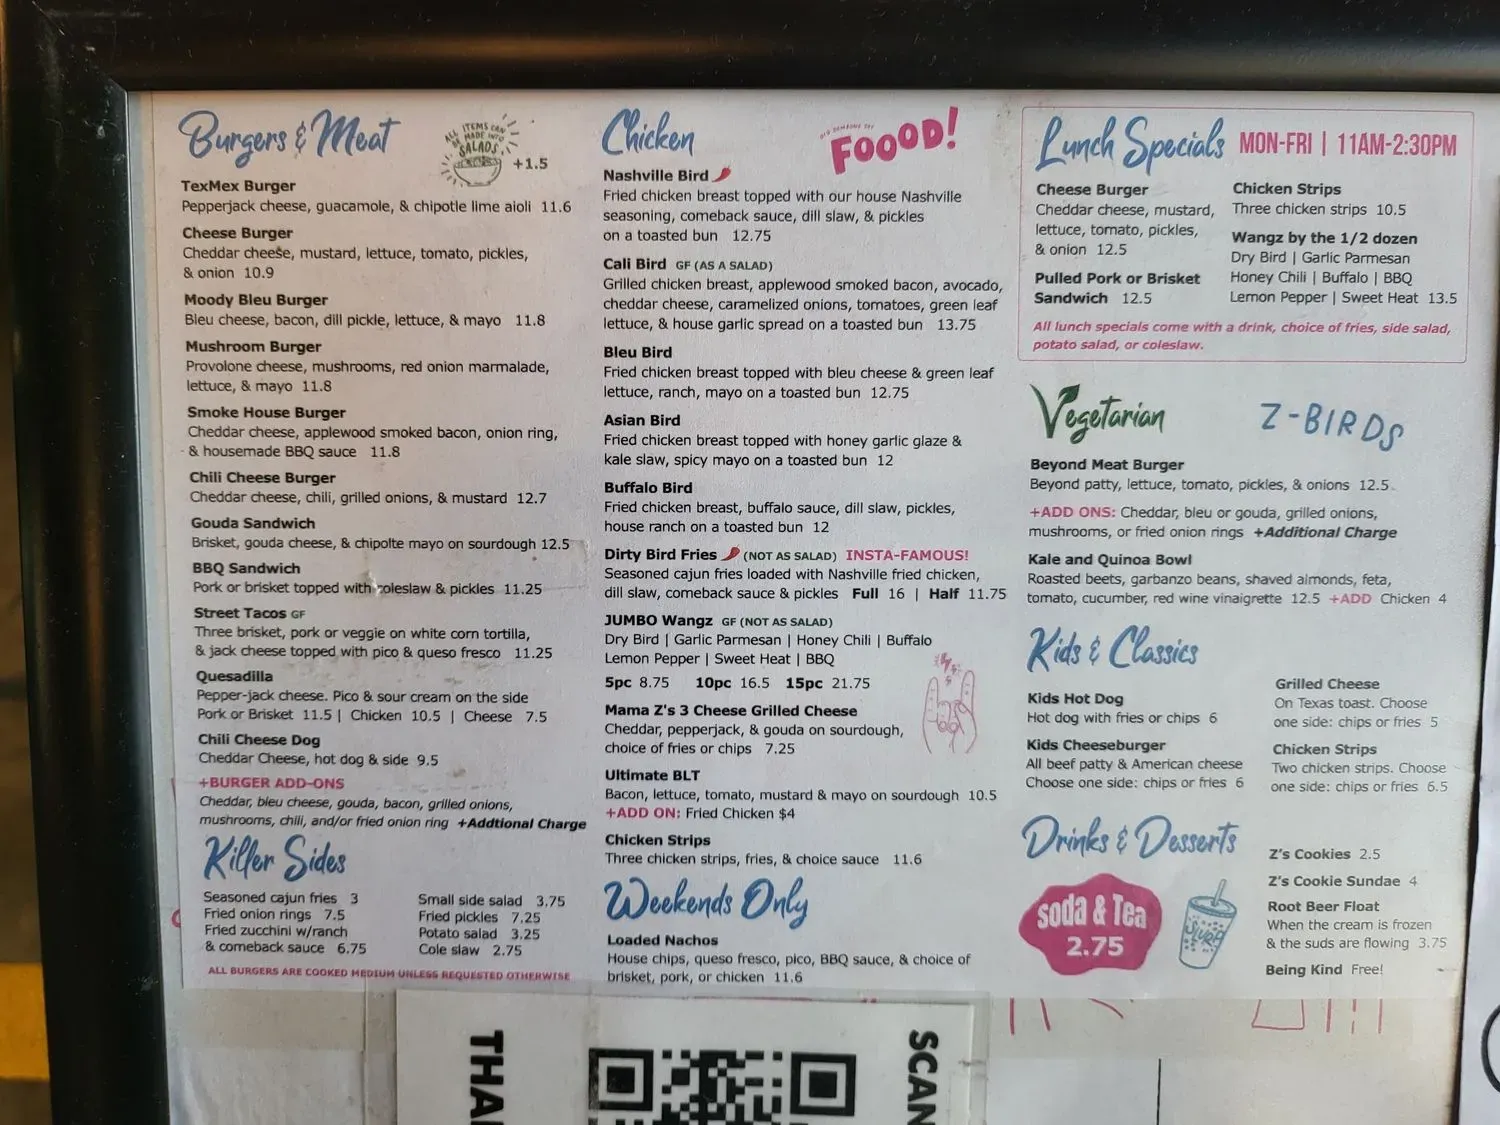 Burgers & Meat
ALL ITEMS CAN
BE MADE INTO
SALADS
+1.5
TexMex Burger
Pepperjack cheese, guacamole, & chipotle lime aioli 11.6
Cheese Burger
Cheddar cheese, mustard, lettuce, tomato, pickles,
& onion 10.9
Moody Bleu Burger
Bleu cheese, bacon, dill pickle, lettuce, & mayo 11.8
Mushroom Burger
Provolone cheese, mushrooms, red onion marmalade,
lettuce, & mayo 11.8
Smoke House Burger
Cheddar cheese, applewood smoked bacon, onion ring,
& housemade BBQ sauce 11.8
Chili Cheese Burger
Cheddar cheese, chili, grilled onions, & mustard 12.7
Gouda Sandwich
Brisket, gouda cheese, & chipolte mayo on sourdough 12.5
BBQ Sandwich
Pork or brisket topped with coleslaw & pickles 11.25
Street Tacos GF
Three brisket, pork or veggie on white corn tortilla,
& jack cheese topped with pico & queso fresco 11.25
Quesadilla
Pepper-jack cheese. Pico & sour cream on the side
Pork or Brisket 11.5 | Chicken 10.5 | Cheese 7.5
Chili Cheese Dog
Cheddar Cheese, hot dog & side 9.5
+BURGER ADD-ONS
Cheddar, bleu cheese, gouda, bacon, grilled onions,
mushrooms, chili, and/or fried onion ring +Addtional Charge
Killer Sides
Seasoned cajun fries 3
Fried onion rings 7.5
Fried zucchini w/ranch
& comeback sauce 6.75
Small side salad 3.75
Fried pickles 7.25
Potato salad 3.25
Cole slaw 2.75
ALL BURGERS ARE COOKED MEDIUM UNLESS REQUESTED OTHERWISE
Chicken
DID SOMEONE SAY
FOOOD!
Nashville Bird
Fried chicken breast topped with our house Nashville
seasoning, comeback sauce, dill slaw, & pickles
on a toasted bun 12.75
Cali Bird GF (AS A SALAD)
Grilled chicken breast, applewood smoked bacon, avocado,
cheddar cheese, caramelized onions, tomatoes, green leaf
lettuce, & house garlic spread on a toasted bun 13.75
Bleu Bird
Fried chicken breast topped with bleu cheese & green leaf
lettuce, ranch, mayo on a toasted bun 12.75
Asian Bird
Fried chicken breast topped with honey garlic glaze &
kale slaw, spicy mayo on a toasted bun 12
Buffalo Bird
Fried chicken breast, buffalo sauce, dill slaw, pickles,
house ranch on a toasted bun 12
Dirty Bird Fries (NOT AS SALAD) INSTA-FAMOUS!
Seasoned cajun fries loaded with Nashville fried chicken,
dill slaw, comeback sauce & pickles Full 16 | Half 11.75
JUMBO Wangz GF (NOT AS SALAD)
Dry Bird | Garlic Parmesan | Honey Chili | Buffalo
Lemon Pepper | Sweet Heat | BBQ
5pc 8.75 10pc 16.5 15pc 21.75
Mama Z's 3 Cheese Grilled Cheese
Cheddar, pepperjack, & gouda on sourdough,
choice of fries or chips 7.25
Ultimate BLT
Bacon, lettuce, tomato, mustard & mayo on sourdough 10.5
+ADD ON: Fried Chicken $4
Chicken Strips
Three chicken strips, fries, & choice sauce 11.6
Weekends Only
Loaded Nachos
House chips, queso fresco, pico, BBQ sauce, & choice of
brisket, pork, or chicken 11.6
Lunch Specials MON-FRI | 11AM-2:30PM
Cheese Burger
Cheddar cheese, mustard,
lettuce, tomato, pickles,
& onion 12.5
Pulled Pork or Brisket
Sandwich 12.5
Chicken Strips
Three chicken strips 10.5
Wangz by the 1/2 dozen
Dry Bird | Garlic Parmesan
Honey Chili | Buffalo | BBQ
Lemon Pepper | Sweet Heat 13.5
All lunch specials come with a drink, choice of fries, side salad,
potato salad, or coleslaw.
Vegetarian
Z-BIRDS
Beyond Meat Burger
Beyond patty, lettuce, tomato, pickles, & onions 12.5
+ADD ONS: Cheddar, bleu or gouda, grilled onions,
mushrooms, or fried onion rings +Additional Charge
Kale and Quinoa Bowl
Roasted beets, garbanzo beans, shaved almonds, feta,
tomato, cucumber, red wine vinaigrette 12.5 +ADD Chicken 4
Kids & Classics
Kids Hot Dog
Hot dog with fries or chips 6
Kids Cheeseburger
All beef patty & American cheese
Choose one side: chips or fries 6
Grilled Cheese
On Texas toast. Choose
one side: chips or fries 5
Chicken Strips
Two chicken strips. Choose
one side: chips or fries 6.5
Drinks & Desserts
soda & Tea
2.75
SLURP
Z's Cookies 2.5
Z's Cookie Sundae 4
Root Beer Float
When the cream is frozen
& the suds are flowing 3.75
Being Kind Free!
THA
SCAN